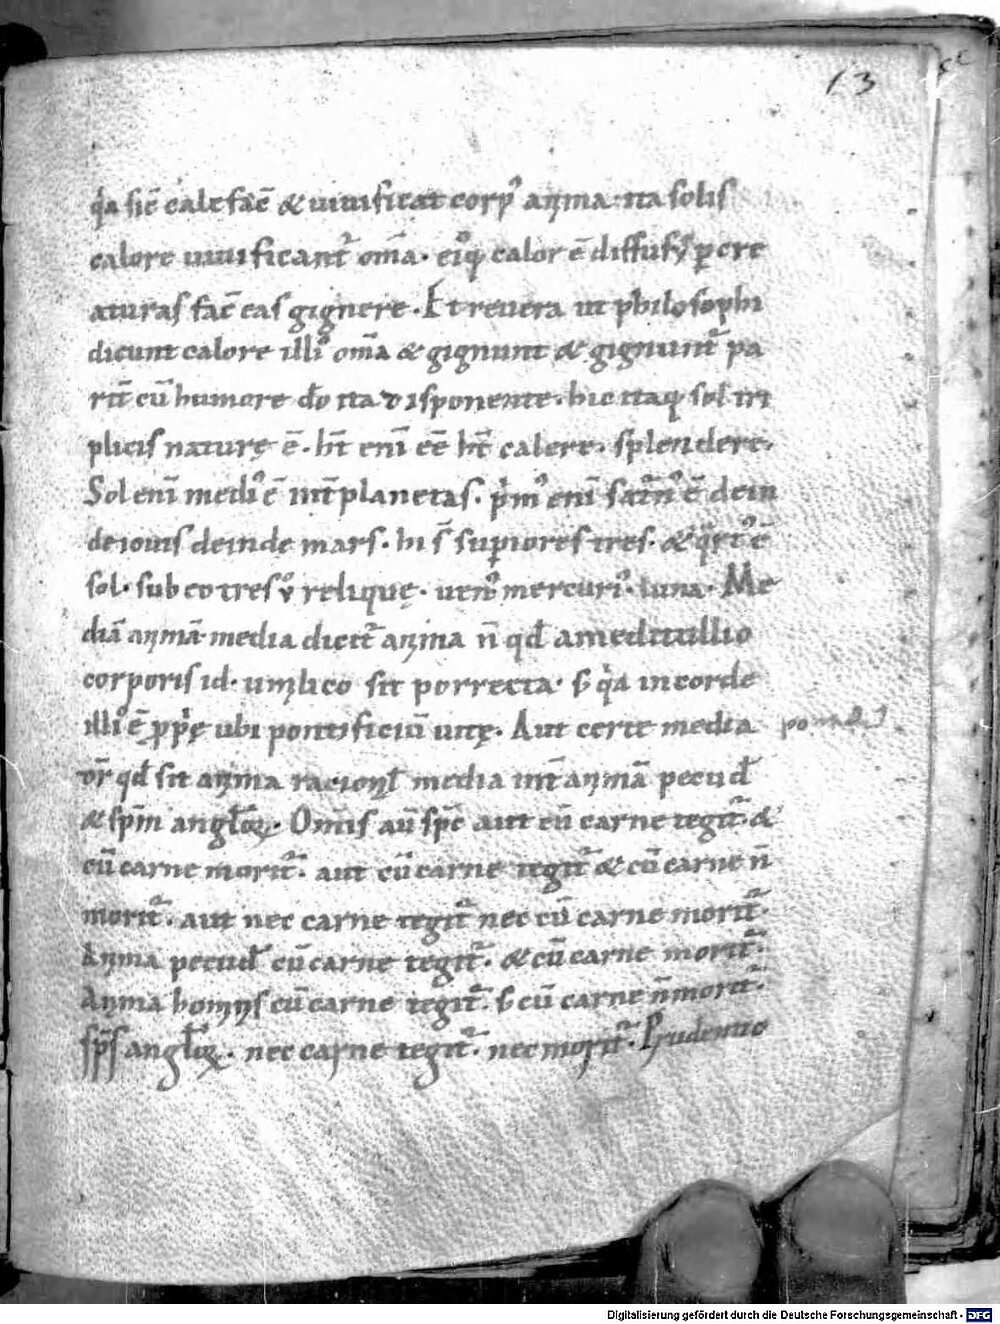 13
q̇a sic̄ calefac̄ & uiuificat corpꝰ anima. ita solis
calore uiuificant᷑ om̄a. eiꝰq; calor ē diffusꝰ ꝑ cre
aturas fac̄ eas gignere. Et reuera ut philosophi
dicunt calore illiꝰ om̄a & gignunt & gignunt᷑ pa
rit̄ cū humore do͞ ita disponente. hic itaq; sol tri
plicis naturę ē. ht̄ enī eē ht̄ calere. splendere.
Sol enī mediꝰ ē int̄ planetas. pͥmꝰ enī satr̄nꝰ ē dein
de iouis deinde mars. hi s̄ suꝑiores tres. & qͣrtꝰ ē
sol. sub eo tres ůo relique̜. uenꝰ mercuriꝰ. luna. Me
diā animā. media dicit᷑ anima n̄ qđ a meditullio
corporis id. umlico sit porrecta. s; q̇a in corde
illiꝰ ē ꝓpͥe̜ ubi pontificiū uite̜. Aut certe media
dr̄ qđ sit anima racional̄ media int̄ animā pecud̄
& sp̄m anglo̜ꝝ. Om̄is aū sp̄c aut cū carne tegit᷑. &
cū carne morit᷑. aut cū carne tegit᷑ & cū carne n̄
morit᷑. aut nec carne tegit᷑ nec cū carne morit᷑.
Anima pecud̄ cū carne tegit᷑. & cū carne morit᷑.
Anima hominis cū carne tegit᷑. s; cū carne n̄ morit᷑.
sp̄s anglo̜ꝝ. nec carne tegit᷑. nec morit᷑. Prudentio
Digitalisierung gefördert durch die Deutsche Forschungsgemeinschaft - DFG